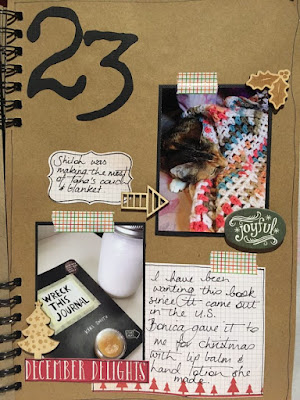 23
Shiloh was
making the most
of Tana's couch
& blanket.
joyful
I have been
wanting this book
since it came out
in the U.S.
gave it to
me for christmas
with lip balm &
hand lotion she
made.
WRECK
THIS
JOURNAL
KERI SMITH
DECEMBER DELIGHTS